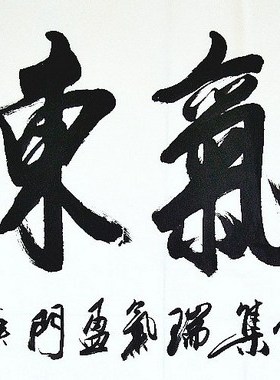 氣東
集瑞氣盈門